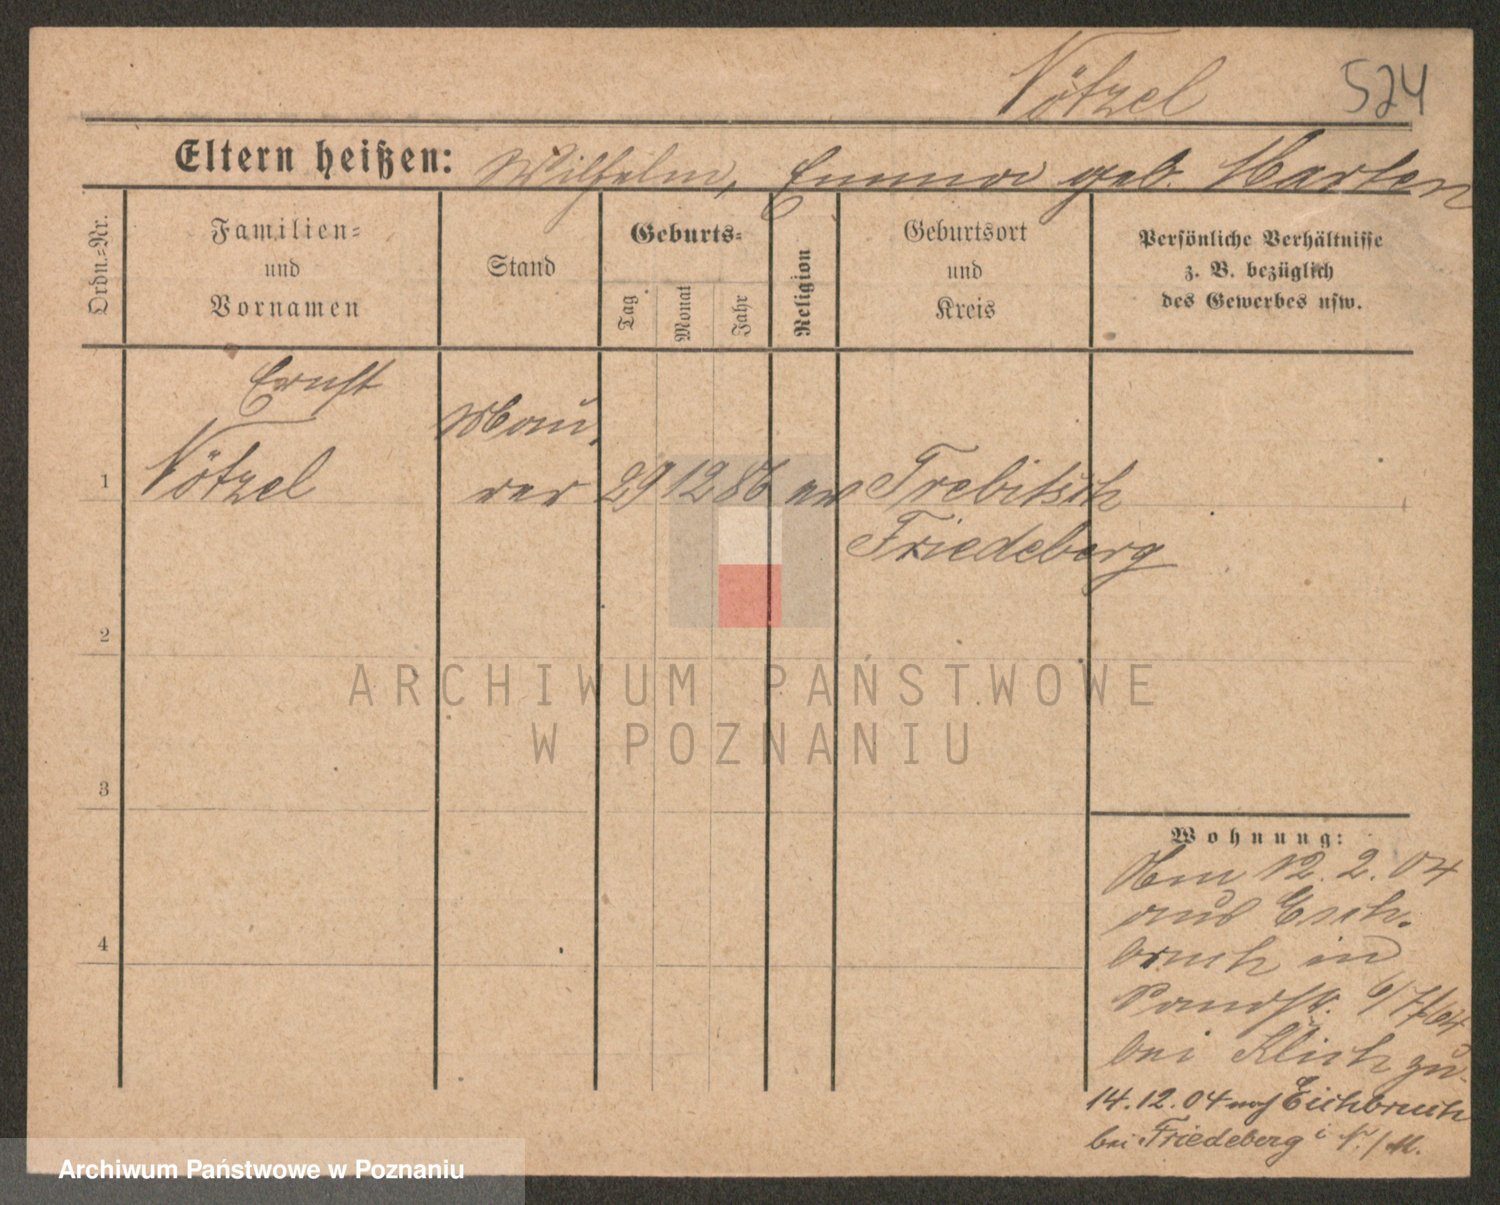 Nötzel
524
Eltern heißen: Wilhelm, Emma geb. Marten
Ordn.=Nr.
Familien=
und
Vornamen
Stand
Geburts=
Tag
Monat
Jahr
Religion
Geburtsort
und
Kreis
Persönliche Verhältnisse
z. B. bezüglich
des Gewerbes usw.
Ernst
Mau
1 Nötzel rer 29 12 86 ev Trebitsch
Friedeberg
2
ARCHIWUM PAŃSTWOWE
W POZNANIU
3
Wohnung:
12. 2. 04
aus Eich
bruch in
6/7
bei zu
4
14. 12. 04 nach Eichbruch
bei Friedeberg i N./M.
Archiwum Państwowe w Poznaniu